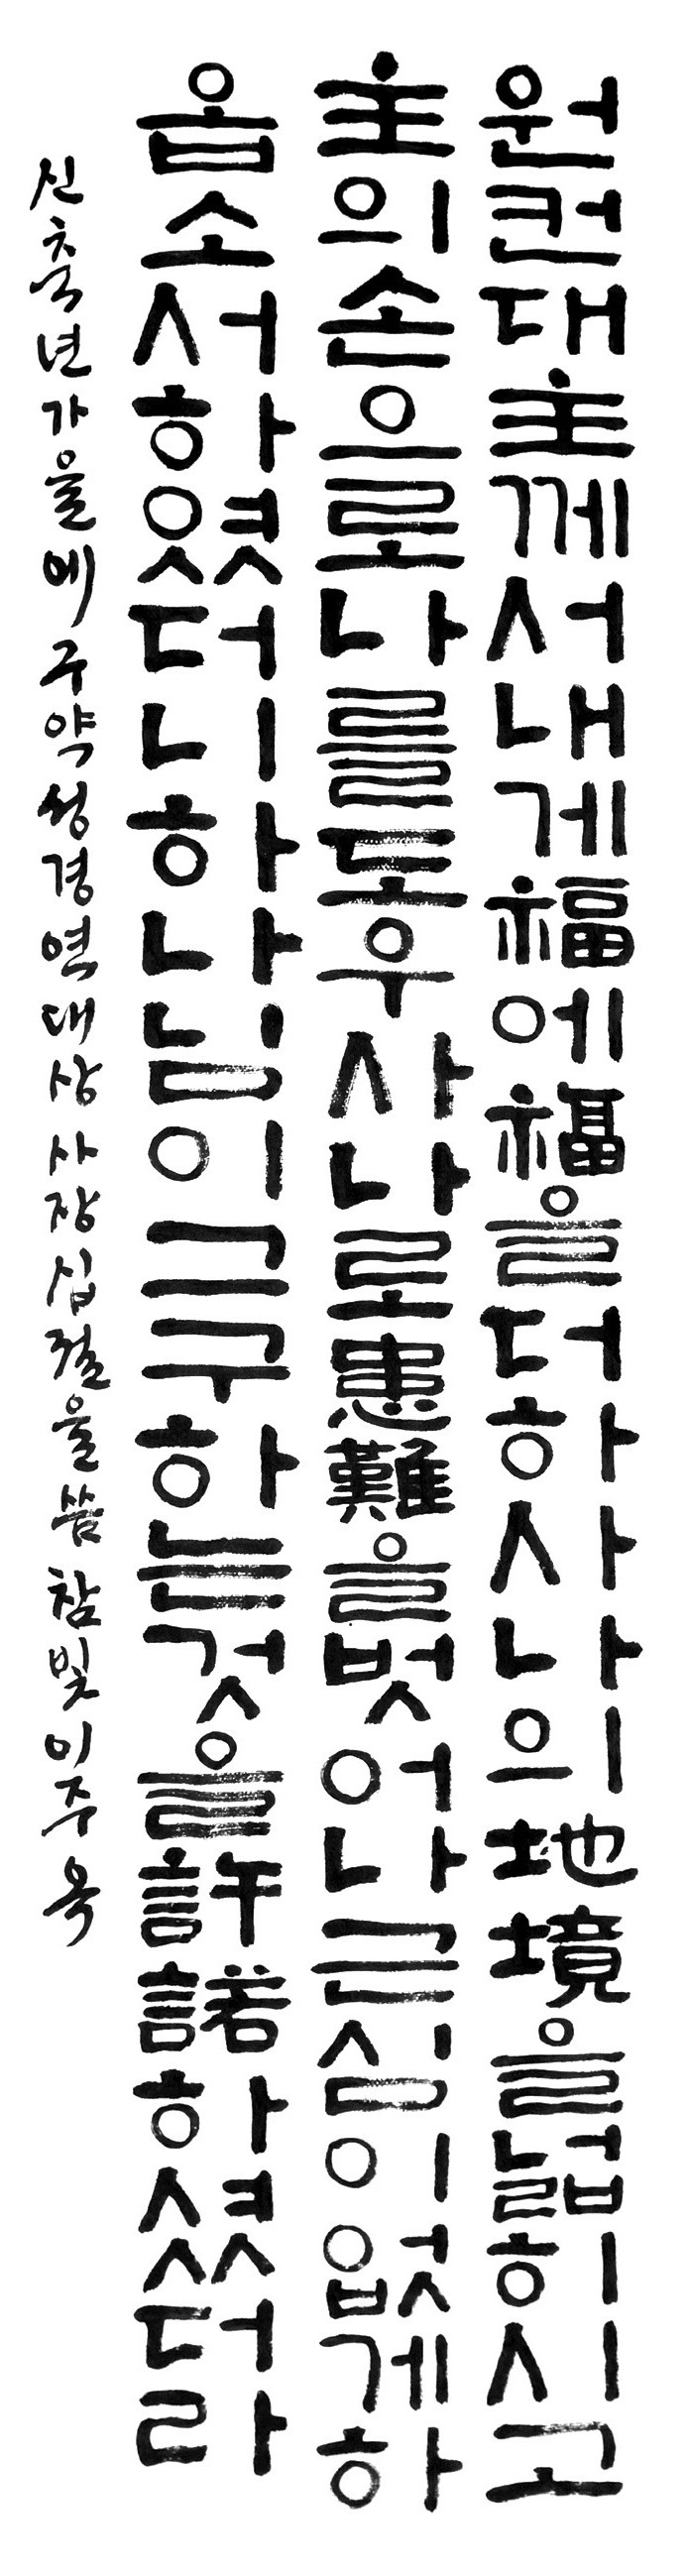 원컨대主께서내게福에福을더하사나의地境을넓히시고
主의손으로나를도우사나로患難을벗어나근심이없게하
옵소서하였더니하나님이그구하는것을許諾하셨더라
신축년가을에구약성경역대상사장십절을씀참빛이주옥